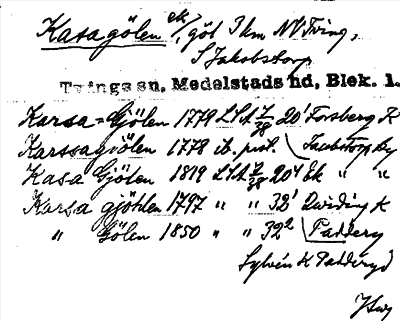 Kasagölen ek/, göl 3 km NV Tving,
S Jakobstorp
Tvings sn. Medelstads hd, Blek. l.
Karsa-Gjölen 1779 LSA 7/38 20¹ Forsberg K
Karssagiölen 1778 ib. prot. Jacobstorp By
Kasa Gjölen 1819 LSA 7/38 20⁴ Ek " "
Karsa gjöhlen 1797 " " 32¹ Qwiding K
" Gölen 1850 " " 32² Paddery
Sylvén K Padderyd